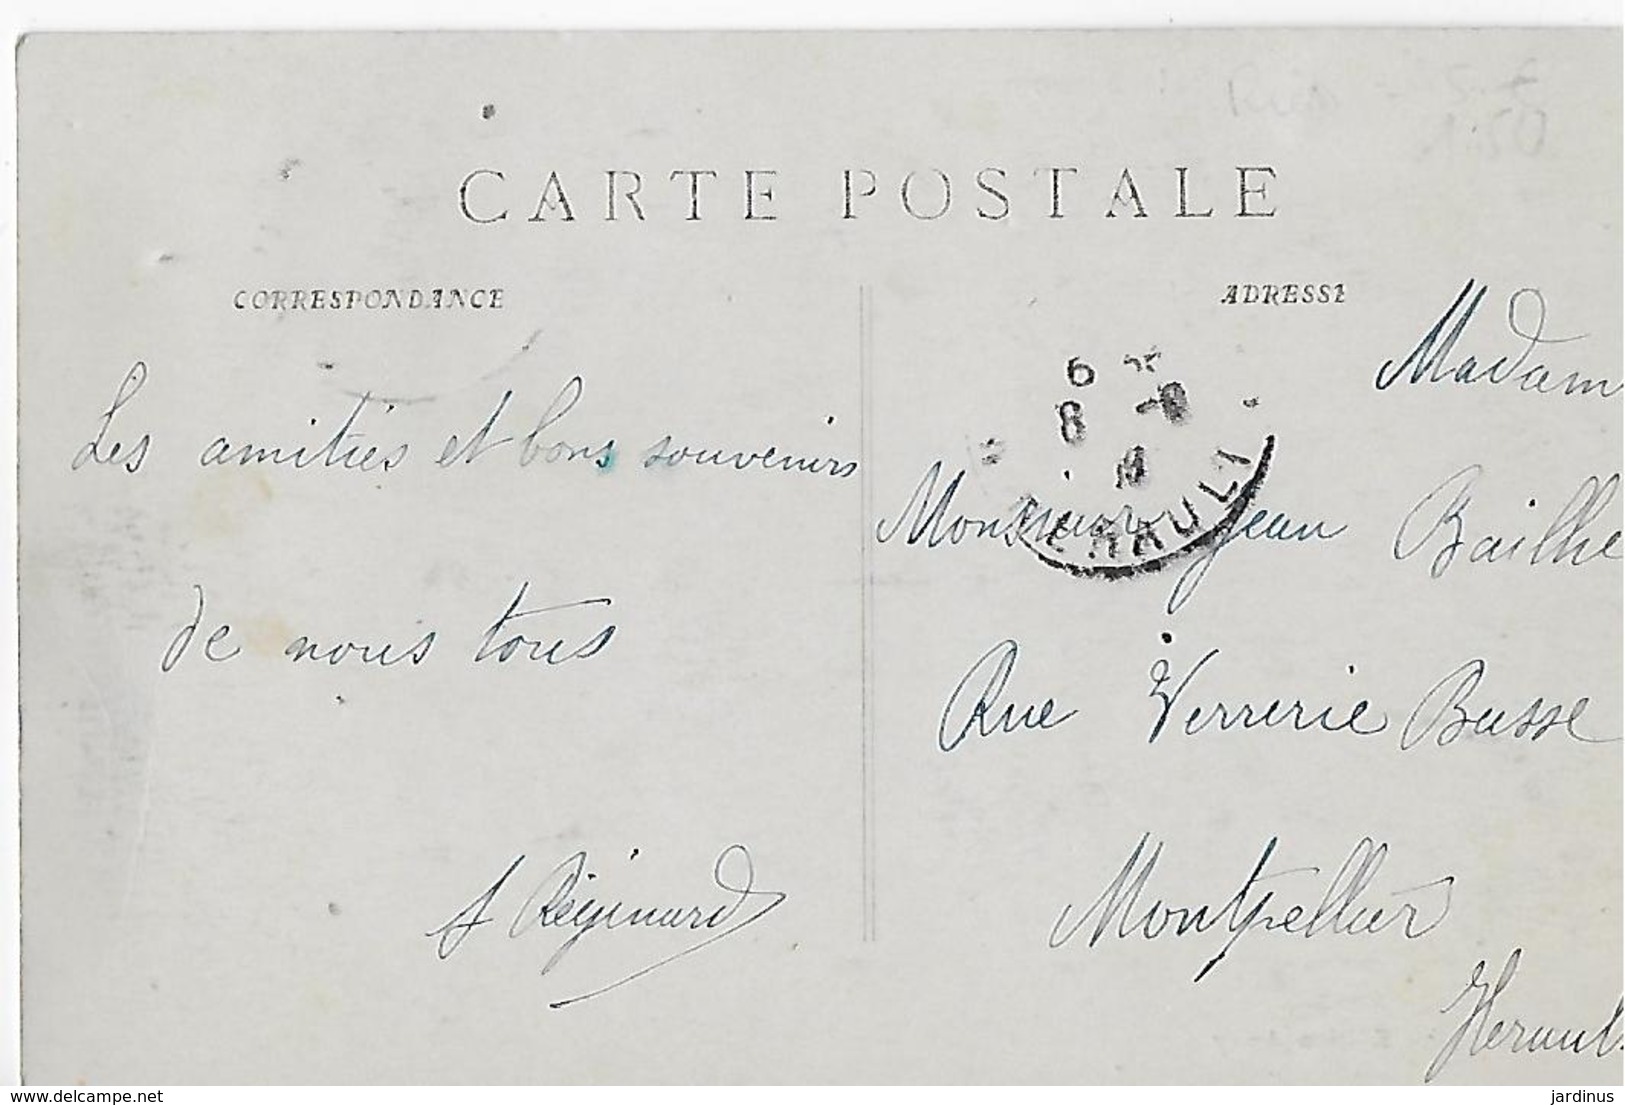 CARTE POSTALE
CORRESPONDANCE
ADRESSE
Madam
Les amitiés et bons souvenirs
de nous tous
Monsieur Jean Bailhe
Rue Verrerie Basse
Montpellier
Herault
HERAULT
6
8
Réginard
www.delcampe.net
jardinus